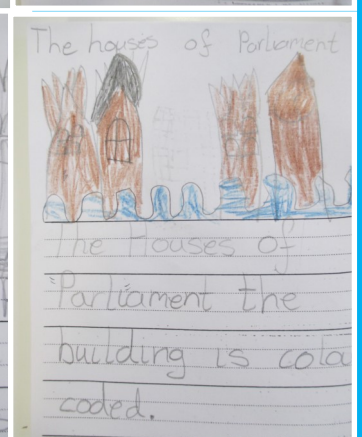 The houses of Parliament
The Houses Of
Parliament the
building is cola
coded.